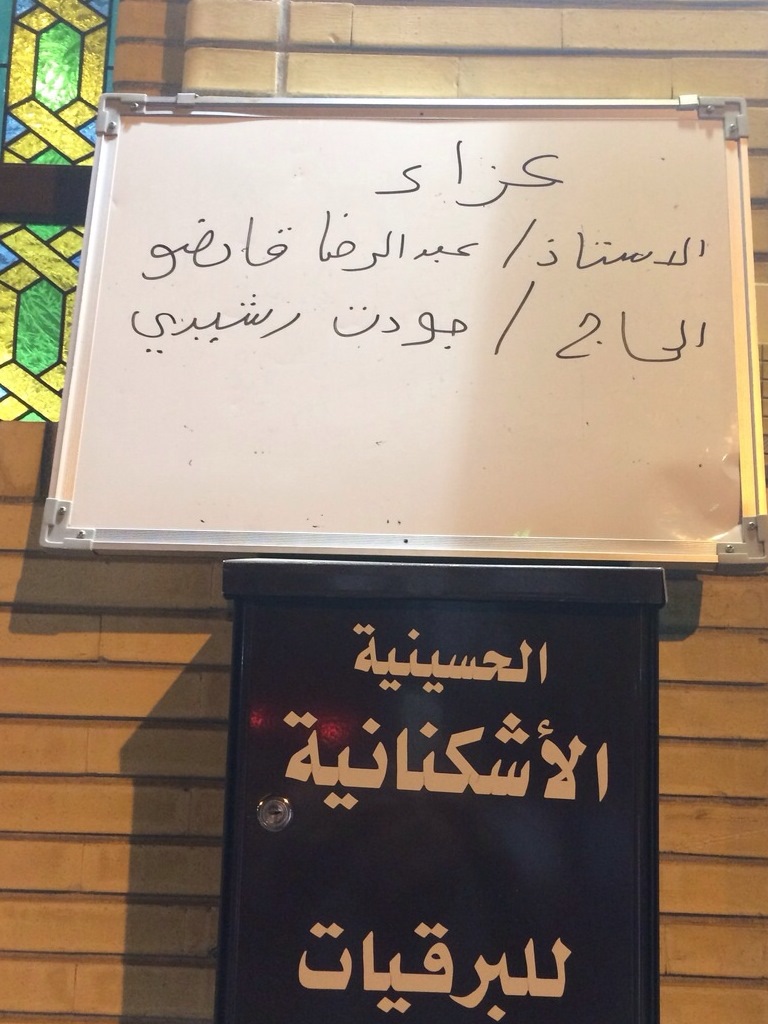 عزاء
الاستاذ / عبدالرضا قانضو
الحاج / جودت رشيدي
الحسينية
الأشكنانية
للبرقيات